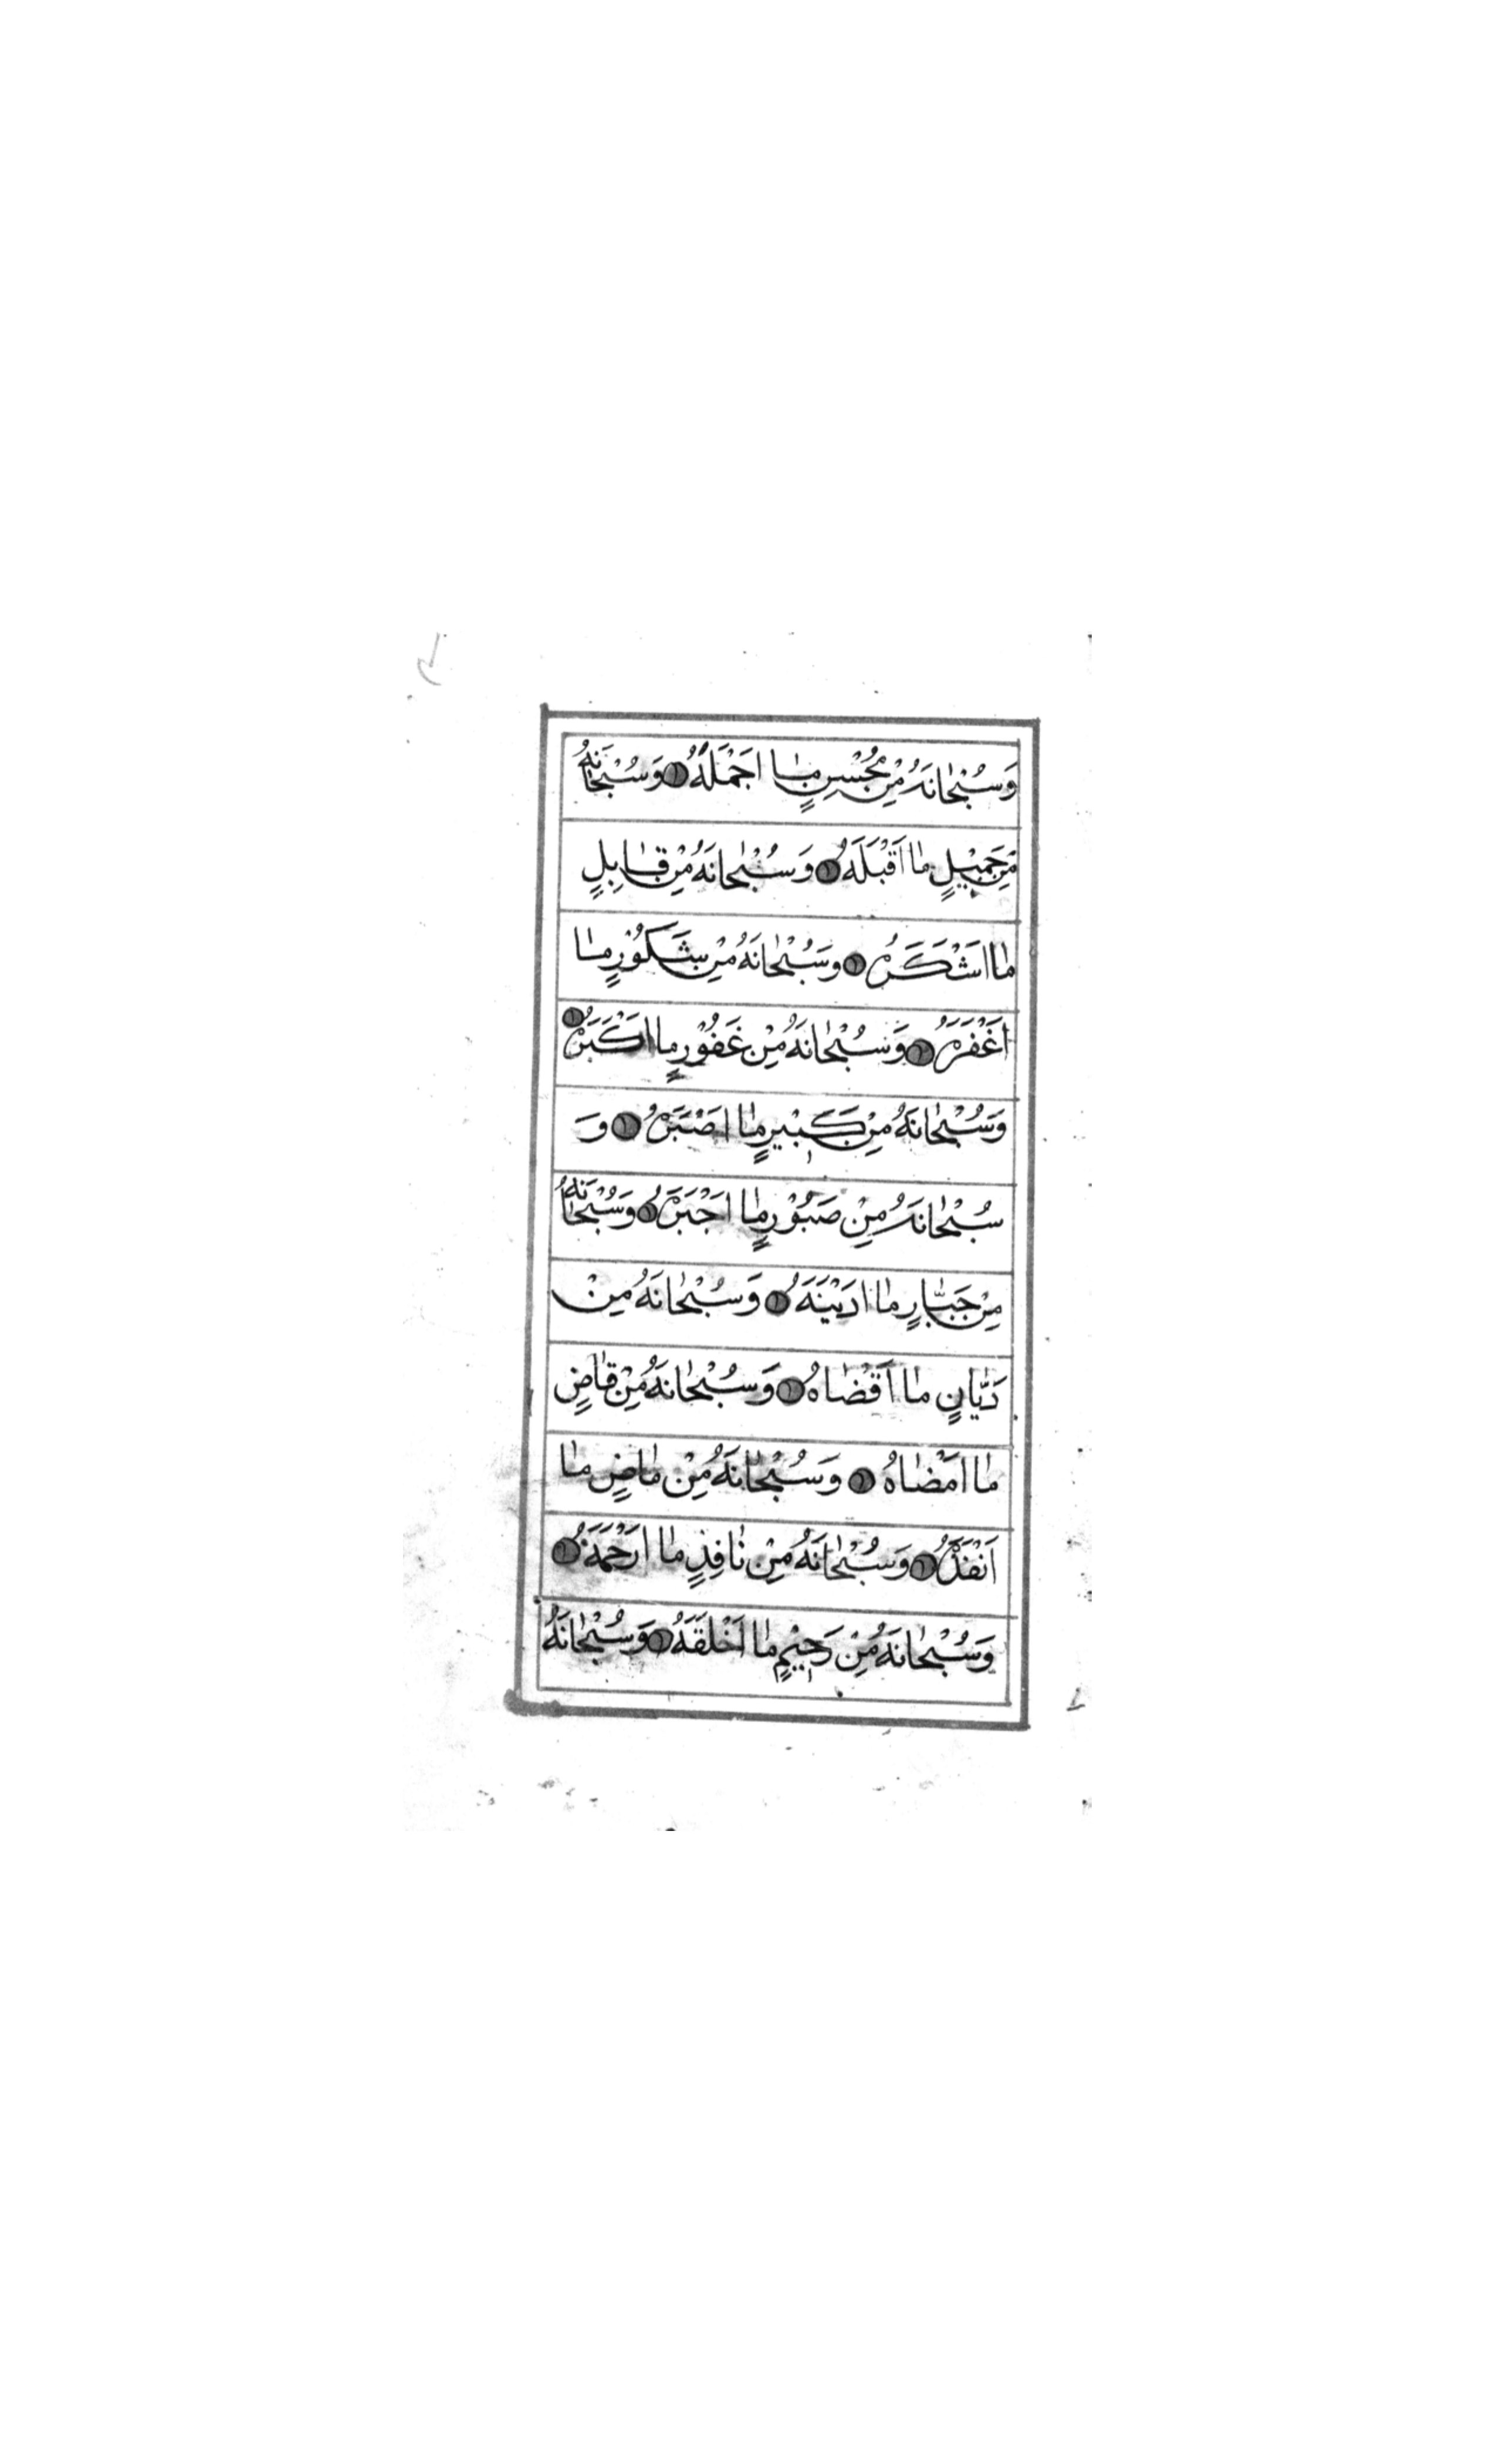 وَسُبْحَانَهُ مِنْ مُحْسِنٍ مَا اَجْمَلَهُ وَسُبْحَانَهُ
مِنْ جَمِيْلٍ مَا اَقْبَلَهُ وَسُبْحَانَهُ مِنْ قَابِلٍ
مَا اَشْكَرَهُ وَسُبْحَانَهُ مِنْ شَكُوْرٍ مَا
اَغْفَرَهُ وَسُبْحَانَهُ مِنْ غَفُوْرٍ مَا اَكْبَرَهُ
وَسُبْحَانَهُ مِنْ كَبِيْرٍ مَا اَصْبَرَهُ وَ
سُبْحَانَهُ مِنْ صَبُوْرٍ مَا اَجْبَرَهُ وَسُبْحَانَهُ
مِنْ جَبَّارٍ مَا اَدْيَنَهُ وَسُبْحَانَهُ مِنْ
دَيَّانٍ مَا اَقْضَاهُ وَسُبْحَانَهُ مِنْ قَاضٍ
مَا اَمْضَاهُ وَسُبْحَانَهُ مِنْ مَاضٍ مَا
اَنْفَذَهُ وَسُبْحَانَهُ مِنْ نَافِذٍ مَا اَرْحَمَهُ
وَسُبْحَانَهُ مِنْ رَحِيْمٍ مَا اَخْلَقَهُ وَسُبْحَانَهُ